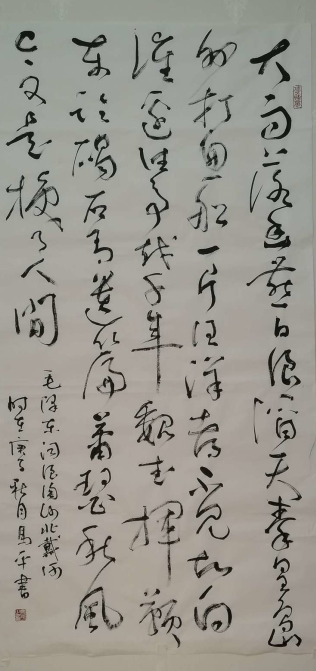 大雨落幽燕白浪滔天秦皇岛
外打鱼船一片汪洋都不见知向
谁边往事越千年魏武揮鞭
东临碣石有遗篇萧瑟秋风
今又是换了人间
毛泽东词浪淘沙北戴河
时在庚子秋月馬平书